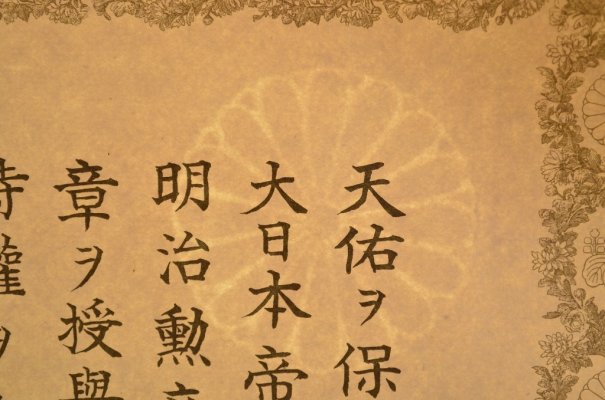 天佑ヲ保
大日本帝
明治勲
章ヲ授與
權ヲ